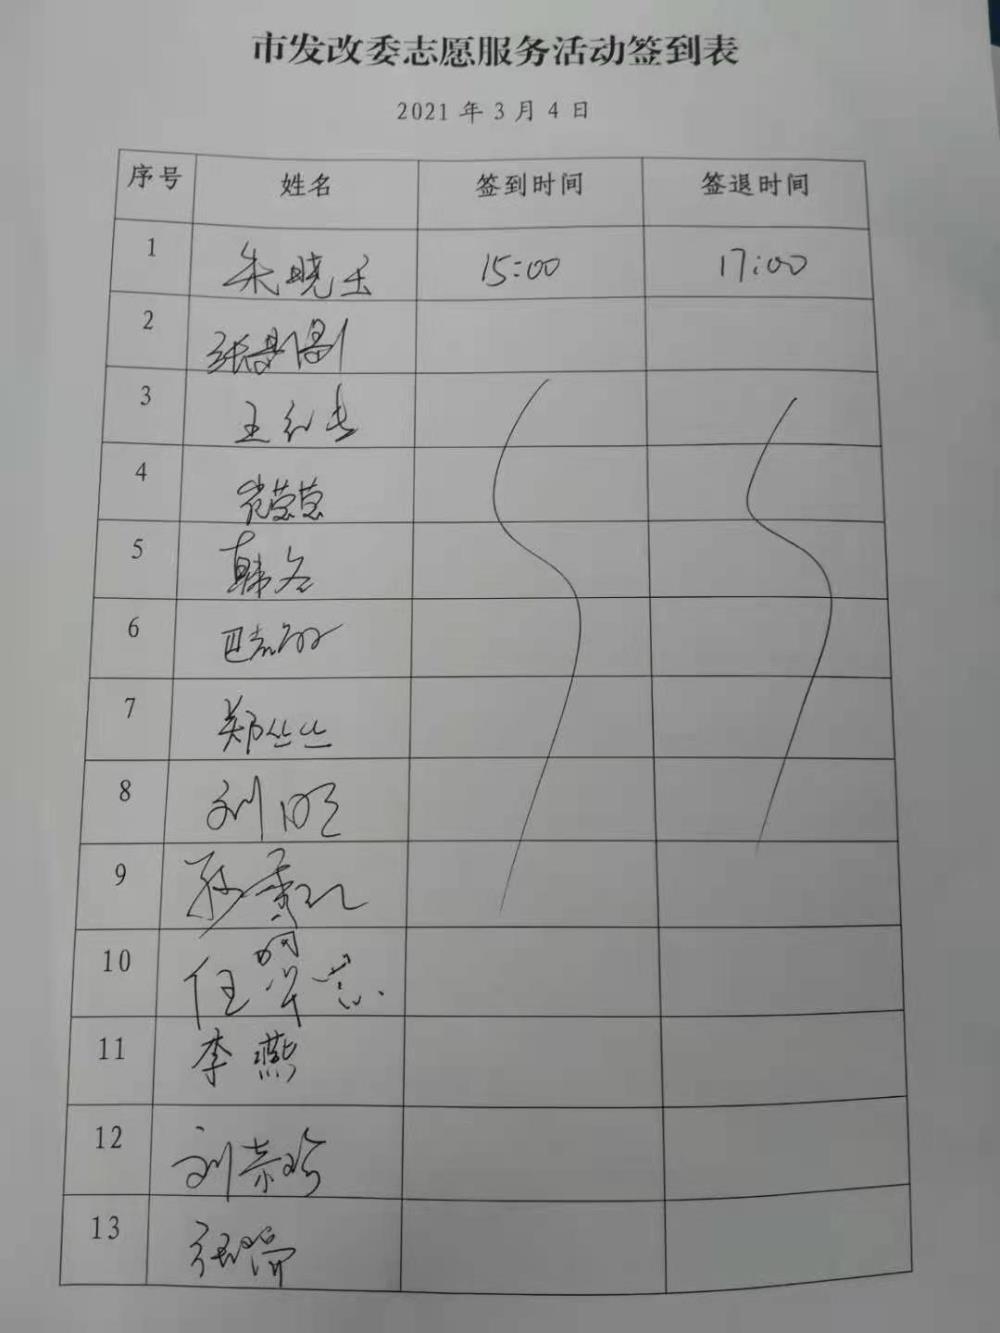 市发改委志愿服务活动签到表
2021 年 3 月 4 日
序号 姓名 签到时间 签退时间
1 朱晓玉 15:00 17:00
2
3 王红
4
5 韩冬
6
7 郑丛丛
8 刘明
9 孙
10 任
11 李燕
12 刘恭玲
13